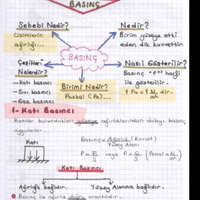 BASINÇ
Sebebi Nedir?
Cisimlerin
ağırlığı...
Nedir?
Birim yüzeye etki
eden dik kuvvettir.
BASINÇ
Çeşitleri
Nelerdir?
- Katı Basıncı
- Sıvı Basıncı
- Gaz Basıncı
Birimi Nedir?
Paskal (Pa)...
Nasıl Gösterilir?
Basınç "P" harfi
ile gösterilir.
1 Pa = 1 N/m²
1- Katı Basıncı
Katılar bulundukları yüzeye ağırlıklarından dolayı basınç
uygularlar.
Katı
Basınç = Ağırlık (Kuvvet) / Yüzey Alanı
P = G/S veya P = F/S (Paskal = N/m²)
Katı Basıncı
Ağırlığa bağlıdır.
Yüzey Alanına bağlıdır.
Basınç ile ağırlık doğru orantılıdır.